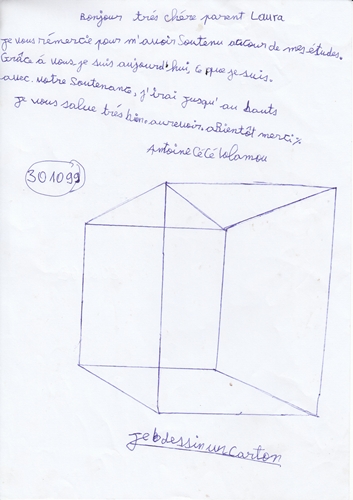 Bonjour très chère parent Laura
je vous rémercie pour m'avoir Soutenu aucour de mes études.
Grâce à vous je suis aujourd'hui, ce que je suis.
avec votre Soutenance, j'irai jusqu'au hauts
je vous salue très bien. aurevoir. aBientôt merci %
Antoine CéCé Volamou
301099
je dessin un Carton